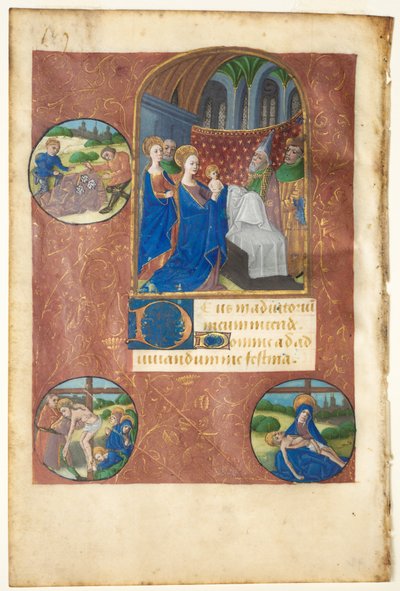 Deus in adiutoriū
meum intende
Domine ad ad
iuuandum me festina.